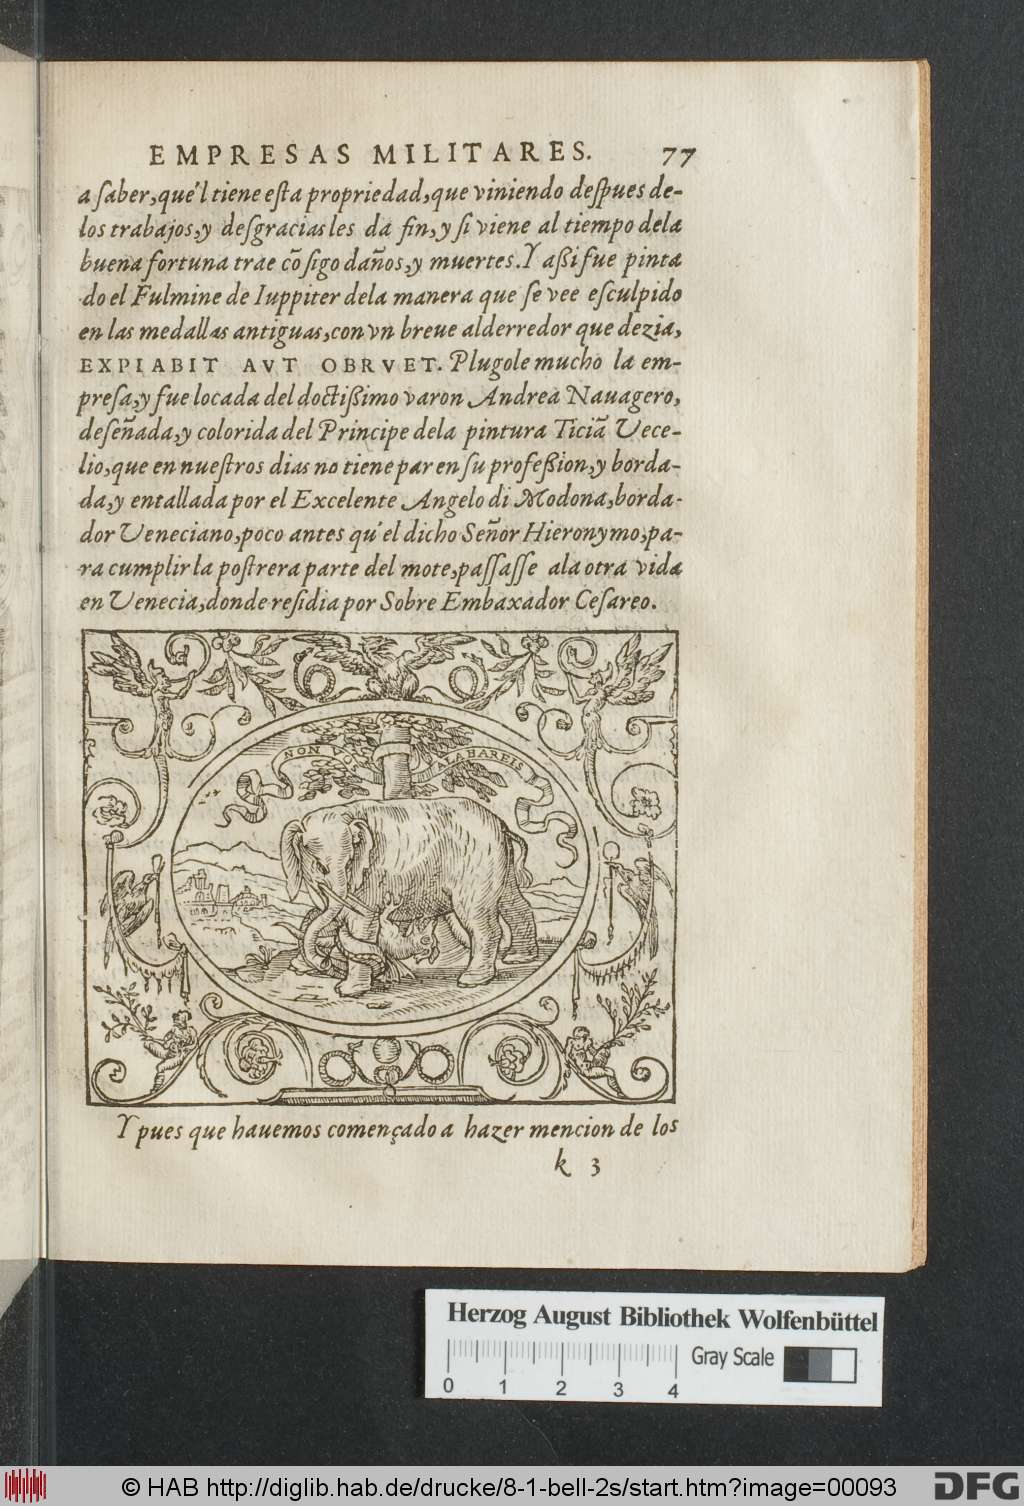 EMPRESAS MILITARES. 77
a ſaber, que'l tiene eſta propriedad, que viniendo deſpues de-
los trabajos, y deſgracias les da fin, y ſi viene al tiempo dela
buena fortuna trae cõ ſigo daños, y muertes. Y aßi fue pinta
do el Fulmine de Iuppiter dela manera que ſe vee eſculpido
en las medallas antiguas, con vn breue alderredor que dezia,
EXPIABIT AVT OBRVET. Plugole mucho la em-
preſa, y fue locada del doctißimo varon Andrea Nauagero,
deſeñada, y colorida del Principe dela pintura Ticiã Vece-
lio, que en nueſtros dias no tiene par en ſu profeßion, y borda-
da, y entallada por el Excelente Angelo di Modona, borda-
dor Veneciano, poco antes qu'el dicho Señor Hieronymo, pa-
ra cumplir la poſtrera parte del mote, paſſaſſe ala otra vida
en Venecia, donde reſidia por Sobre Embaxador Ceſareo.
NON VOS ALABAREIS
Y pues que hauemos començado a hazer mencion de los
k 3
Herzog August Bibliothek Wolfenbüttel
0 1 2 3 4 Gray Scale
© HAB http://diglib.hab.de/drucke/8-1-bell-2s/start.htm?image=00093
DFG